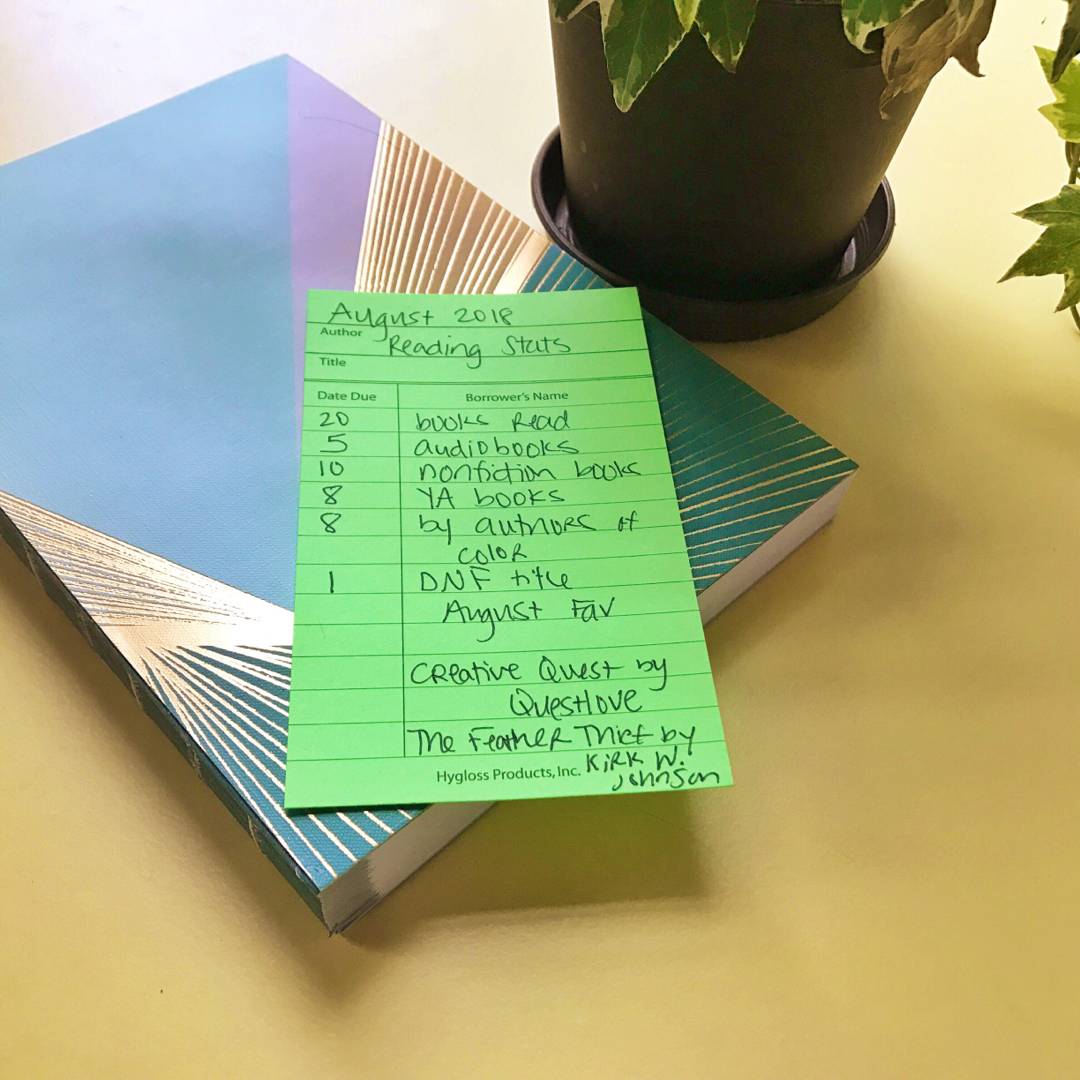 August 2018
Author
Reading Stats
Title
Date Due Borrower's Name
20 books Read
5 audiobooks
10 nonfiction books
8 YA books
8 by authors of
color
1 DNF title
August Fav
Creative Quest by
Questlove
The Feather Thief by
Kirk W.
Hygloss Products, Inc. Johnson